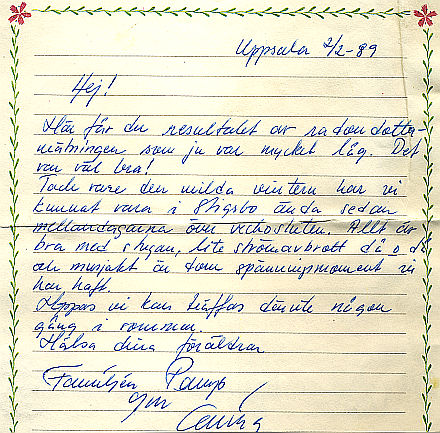 Uppsala 2/2-89
Hej!
Här får du resultatet av radondotter-
mätningen som ju var mycket låg. Det
var väl bra!
Tack vare den milda vintern har vi
kunnat vara i Stigsbo ända sedan
mellandagarna över veckosluten. Allt är
bra med stugan, lite strömavbrott då o då
och musjakt är dom spänningsmoment vi
har haft.
Hoppas vi kan träffas därute någon
gång i sommar.
Hälsa dina föräldrar
Familjen
gm